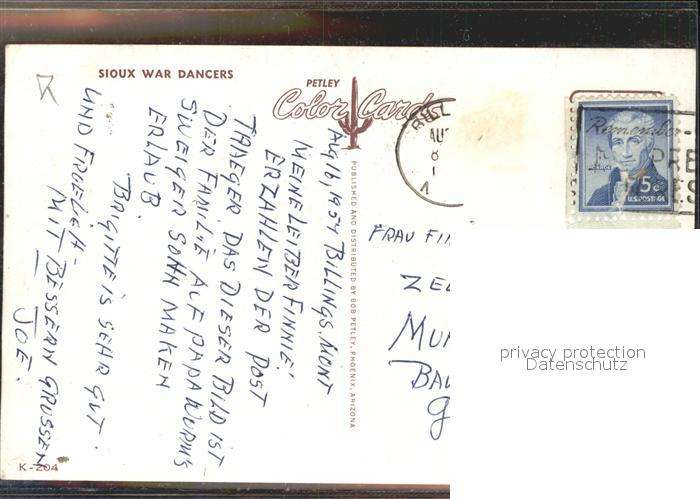 SIOUX WAR DANCERS
PETLEY
Color Card
PUBLISHED AND DISTRIBUTED BY BOB PETLEY, PHOENIX, ARIZONA
K-204
AUG 16, 1954 BILLINGS, MONT
MEINE LEIBER FINNIE'
ERZAHLEN DER POST
TRAEGER DAS DIESER BILD IST
DER FAMILIE AUF PAPA WURM'S
SWEIGER SOHN MAKEN
ERLAUB
BRIGITTE IS SEHR GUT.
UND FRUELICH -
MIT BESSERN GRUSSEN
JOE.
AU
8
Remember
PRE
5¢
U.S. POSTAGE
FRAU FI
ZE
MU
BA
G
privacy protection
Datenschutz